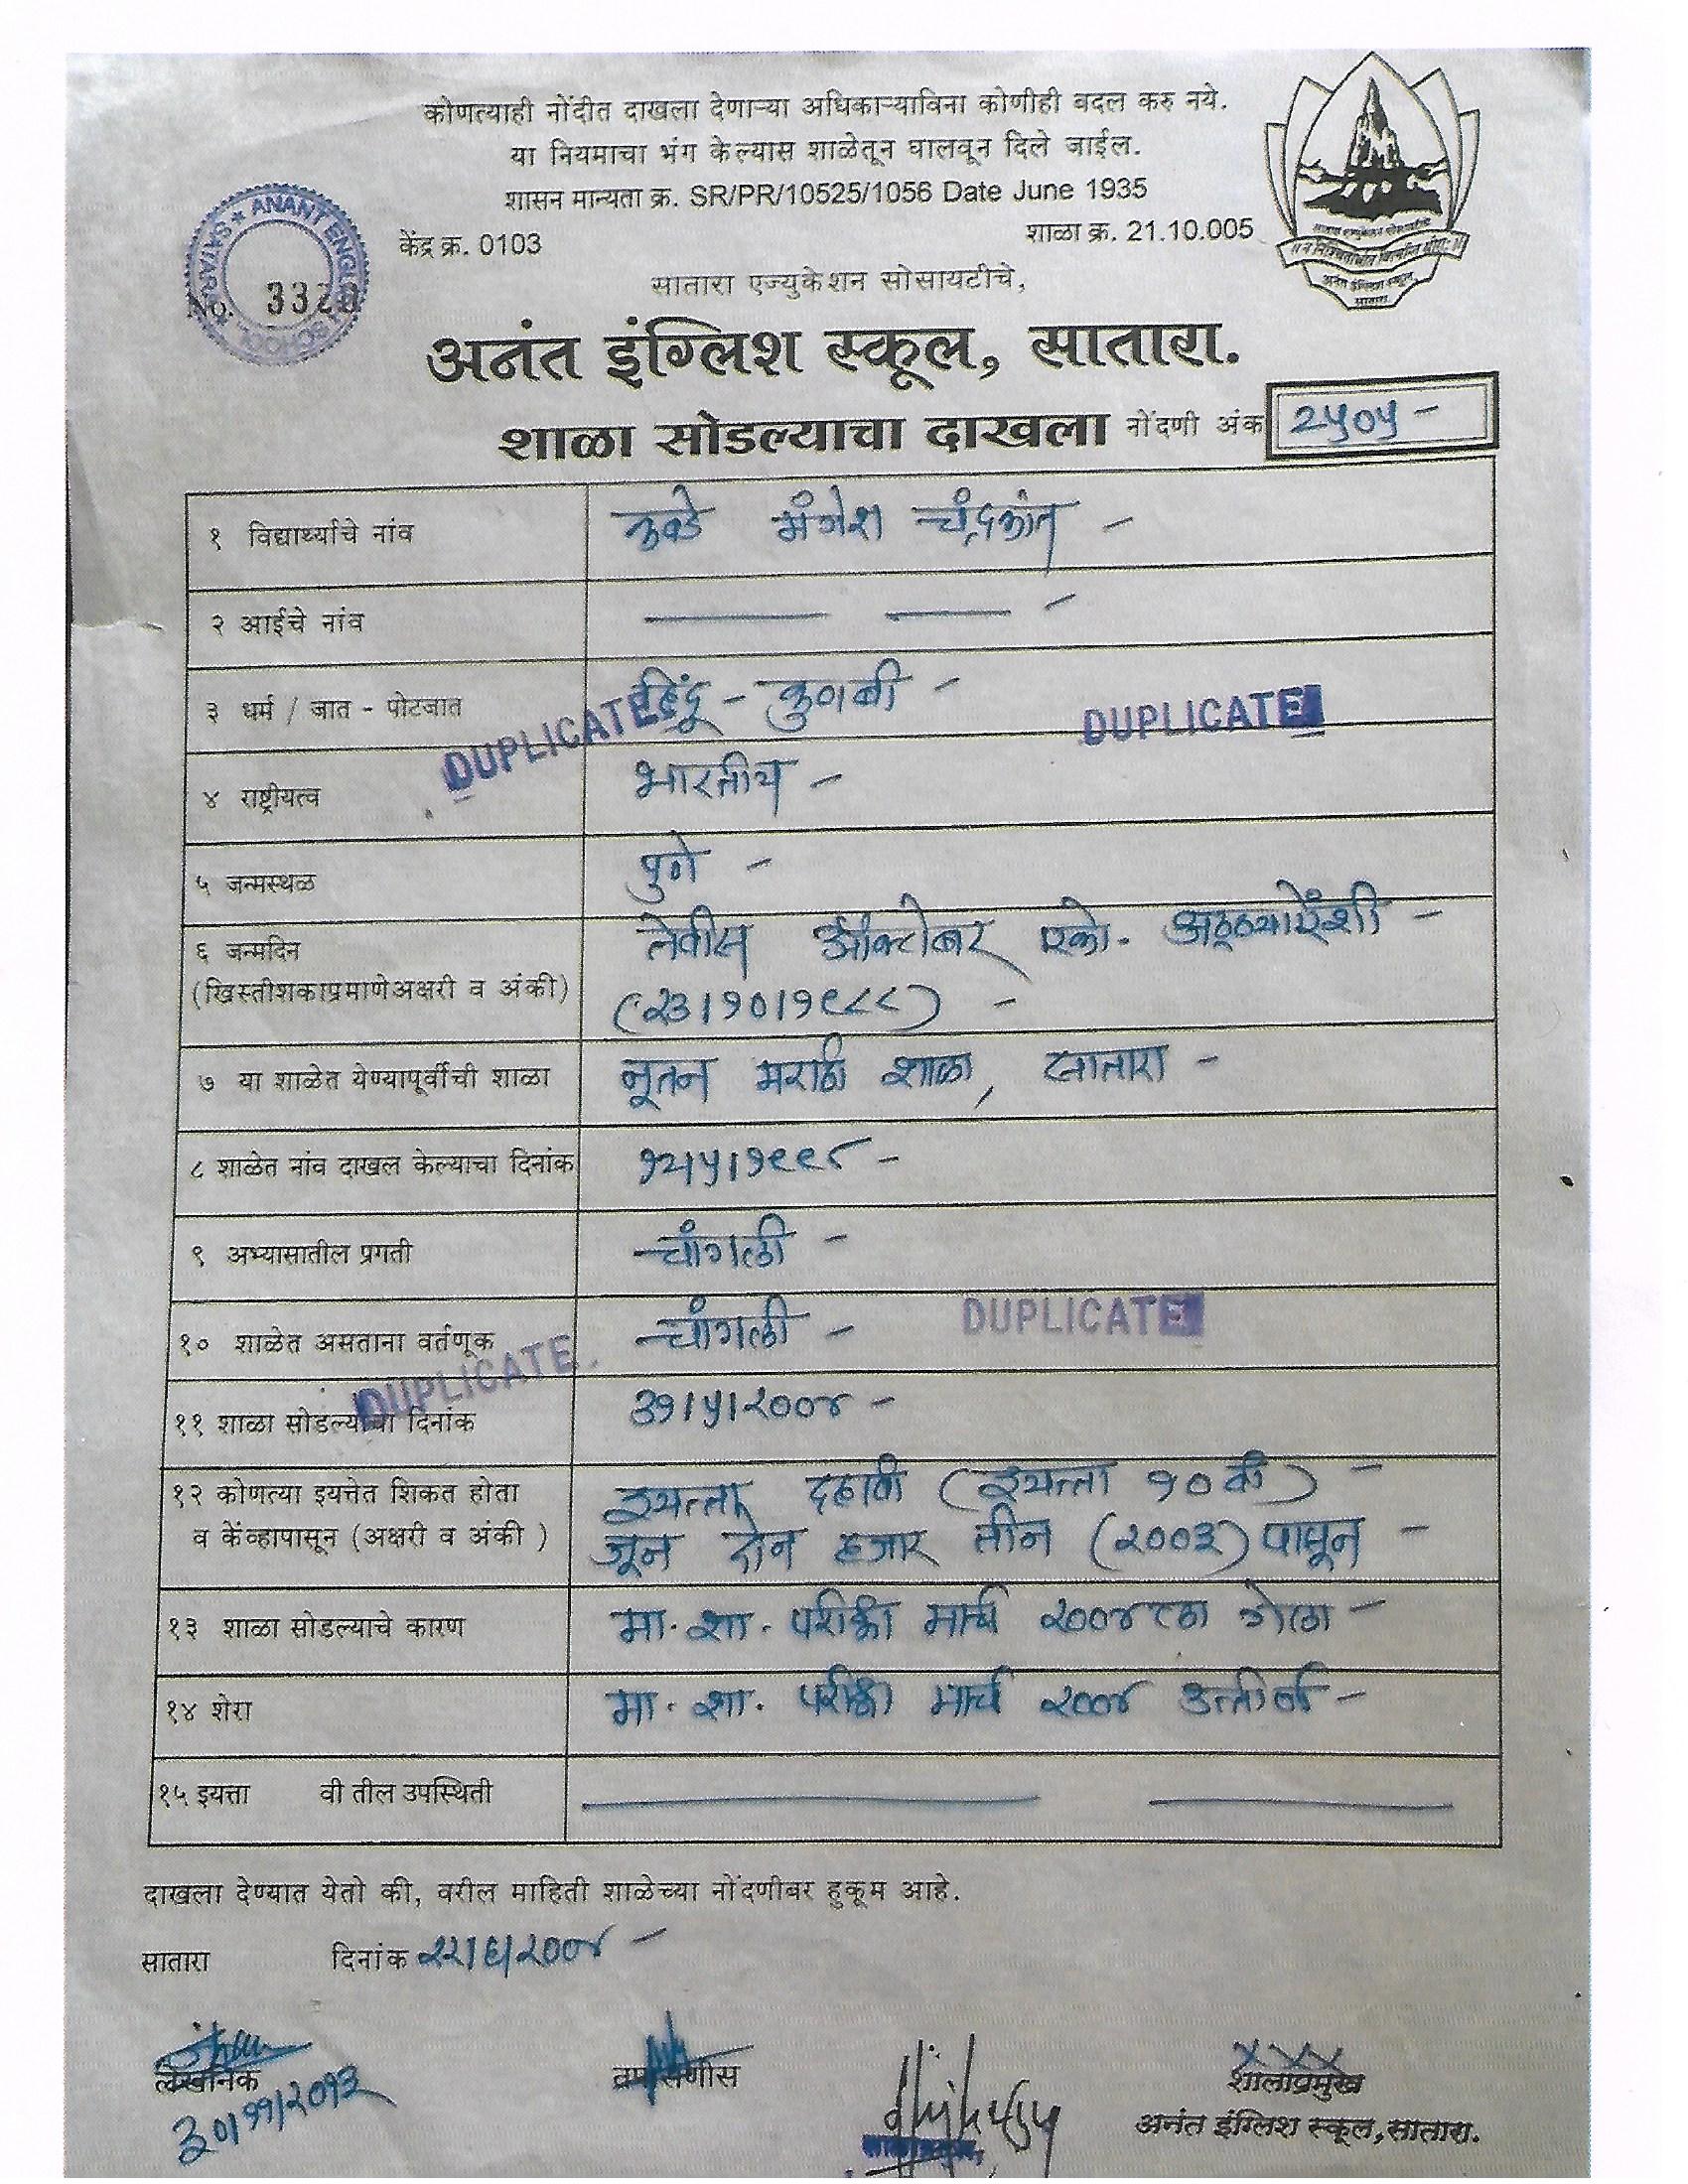 कोणत्याही नोंदीत दाखला देणाऱ्या अधिकाऱ्याविना कोणीही बदल करु नये.
या नियमाचा भंग केल्यास शाळेतून घालवून दिले जाईल.
शासन मान्यता क्र. SR/PR/10525/1056 Date June 1935
केंद्र क्र. 0103 शाळा क्र. 21.10.005
ANANT ENGLISH SCHOOL, SATARA
No.
सातारा एज्युकेशन सोसायटीचे,
अनंत इंग्लिश स्कूल सातारा
अनंत इंग्लिश स्कूल, सातारा.
शाळा सोडल्याचा दाखला नोंदणी अंक २५०५ -
१ विद्यार्थ्याचे नांव मंगेश चंद्रकांत -
२ आईचे नांव
३ धर्म / जात - पोटजात हिंदू - कुणबी -
DUPLICATE DUPLICATE
४ राष्ट्रीयत्व भारतीय -
५ जन्मस्थळ पुणे -
६ जन्मदिन तेवीस ऑक्टोबर एको. अठ्ठ्याऐंशी -
(खिस्तीशकाप्रमाणेअक्षरी व अंकी) (२३।१०।१९८८) -
७ या शाळेत येण्यापूर्वीची शाळा नूतन मराठी शाळा, सातारा -
८ शाळेत नांव दाखल केल्याचा दिनांक
९ अभ्यासातील प्रगती चांगली -
१० शाळेत असताना वर्तणूक चांगली -
DUPLICATE DUPLICATE
११ शाळा सोडल्याचा दिनांक ३१।५।२००४ -
१२ कोणत्या इयत्तेत शिकत होता इयत्ता दहावी (इयत्ता १० वी) -
व केंव्हापासून (अक्षरी व अंकी ) जून दोन हजार तीन (२००३) पासून -
१३ शाळा सोडल्याचे कारण मा. शा. परीक्षा मार्च २००४ ला गेला -
१४ शेरा मा. शा. परीक्षा मार्च २००४ उत्तीर्ण -
१५ इयत्ता वी तील उपस्थिती
दाखला देण्यात येतो की, वरील माहिती शाळेच्या नोंदणीबर हुकूम आहे.
सातारा दिनांक २२।६।२००४ -
लेखनिक शाळाप्रमुख
३०/११/२०१३
अनंत इंग्लिश स्कूल,सातारा.